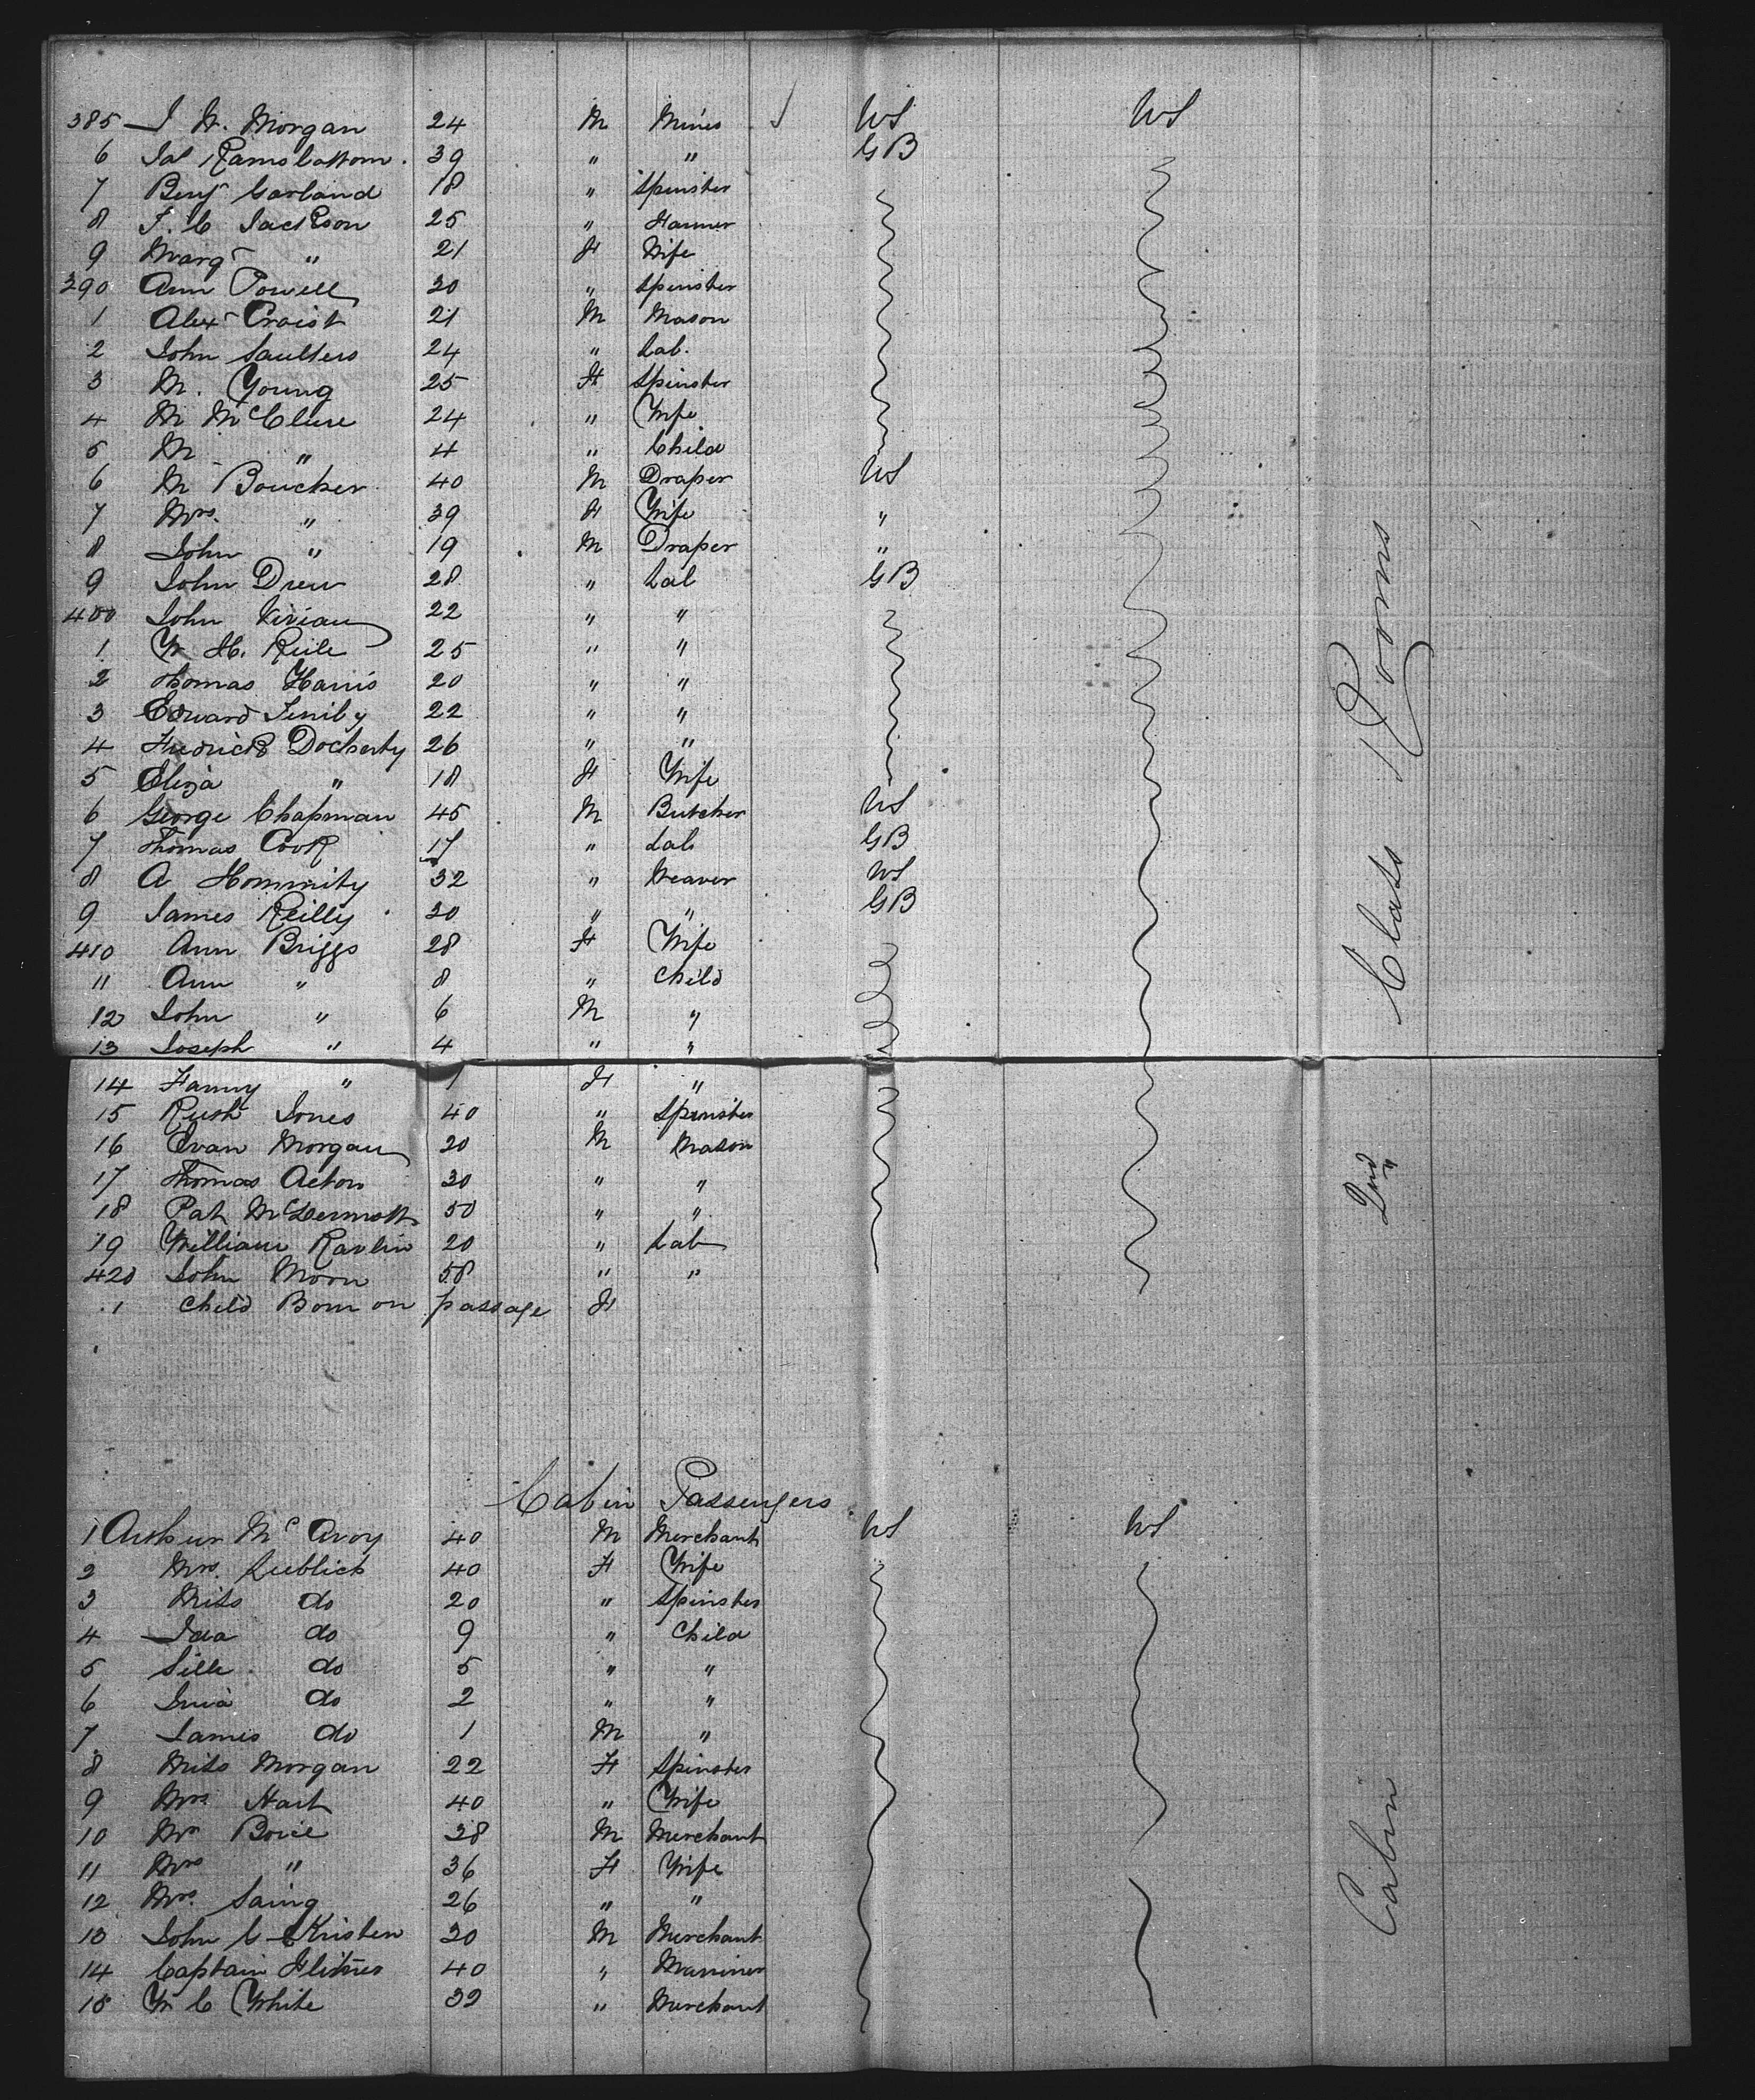 385 J W. Morgan 24 M Miner US US
6 Jas Ramsbottom 39 " " GB
7 Benj Garland 18 " Spinster
8 J. C Jackson 25 " Farmer
9 Marg " 21 F Wife
390 Ann Powell 30 " Spinster
1 Alex Craist 21 M Mason
2 John Saulters 24 " Lab.
3 M. Young 25 F Spinster
4 M McClure 24 " Wife
5 M " 4 " Child
6 M Boucher 40 M Draper US
7 Mrs. " 39 F Wife "
8 John " 19 M Draper "
9 John Drew 28 " Lab GB
400 John Vivian 22 " "
1 W. H. Reile 25 " "
2 Thomas Harris 20 " "
3 Edward 22 " "
4 Fredrick Docherty 26 " "
5 Eliza " 18 F Wife
6 George Chapman 45 M Butcher US
7 Thomas Cook 17 " Lab GB
8 A Hommity 32 " Weaver US
9 James Reilly 30 " " GB
410 Ann Briggs 28 F Wife
11 Ann " 8 " Child
12 John " 6 M "
13 Joseph " 4 " "
14 Fanny " 1 F "
15 Ruth Jones 40 " Spinster
16 Evan Morgan 20 M Mason
17 Thomas Acton 30 " "
18 Pat McDermott 50 " "
19 William Ravlin 20 " Lab
420 John Moon 58 " "
1 Child Born on passage F
2nd Class Rooms
Cabin Passengers
1 Arthur Mc Avoy 40 M Merchant US US
2 Mrs. Lieblick 40 F Wife
3 Miss do 20 " Spinster
4 Ida do 9 " Child
5 do 5 " "
6 do 2 " "
7 James do 1 M "
8 Miss Morgan 22 F Spinster
9 Mrs Hart 40 " Wife
10 Mr Boice 38 M Merchant
11 Mrs " 36 F Wife
12 Mrs. Saing 26 " "
13 John C Kristen 30 M Merchant
14 Captain 40 " Mariner
15 W C White 32 " Merchant
Cabin